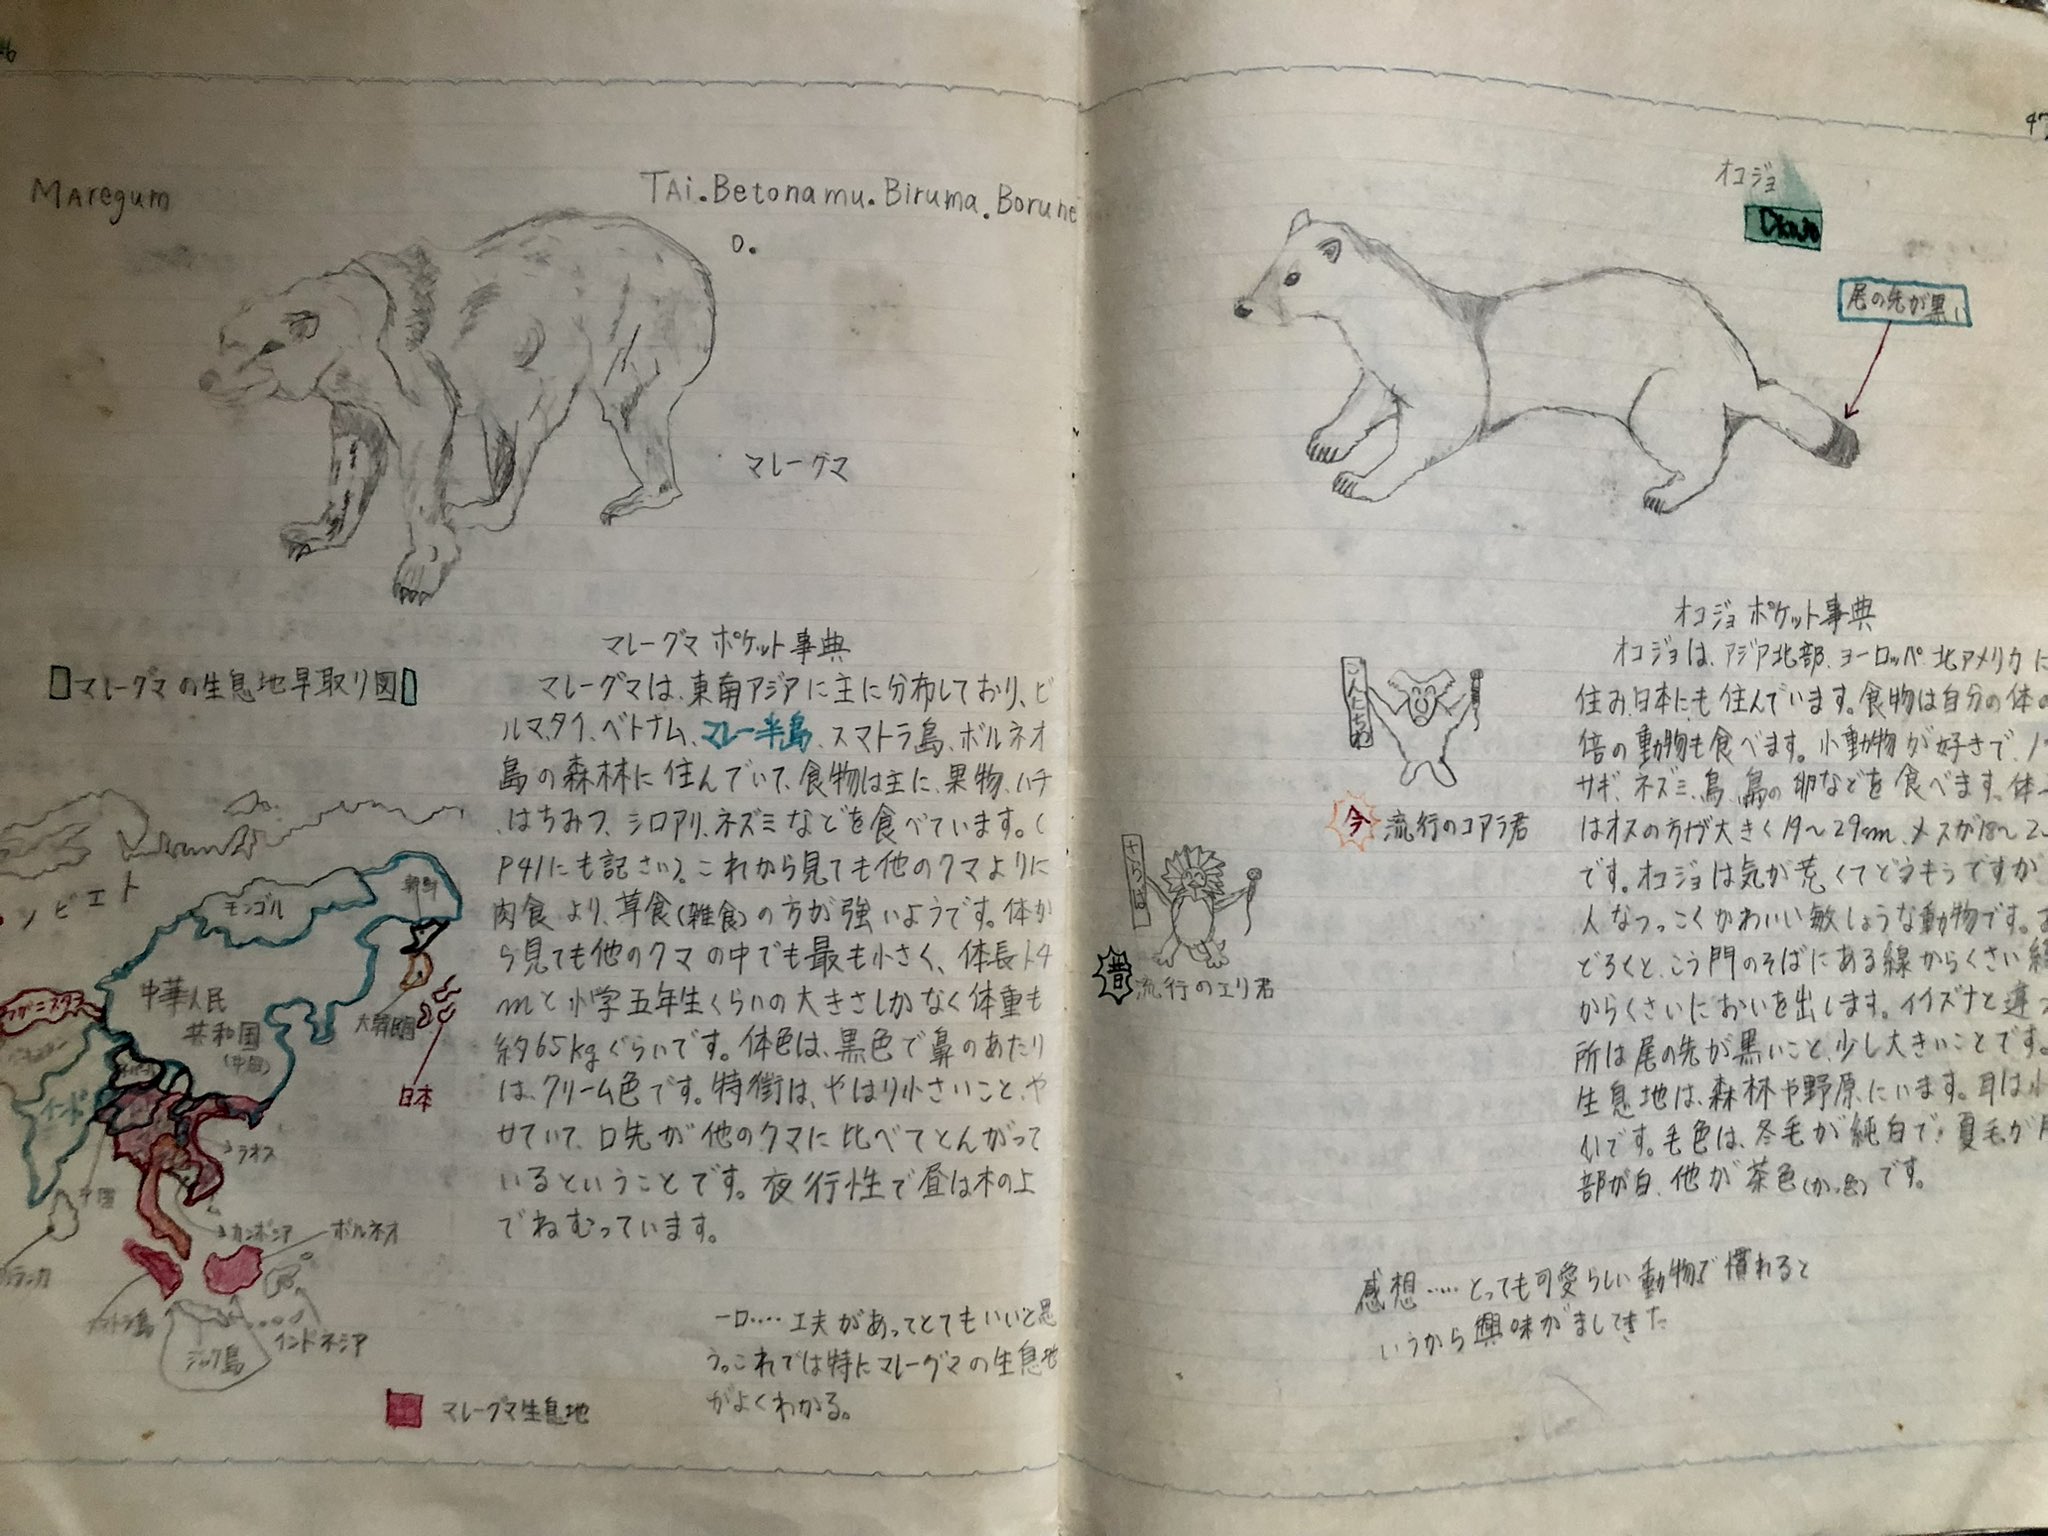 MAregum
TAi.Betonamu.Biruma.Borune
o.
マレーグマ
マレーグマの生息地早取り図
マレーグマ ポケット事典
マレーグマは、東南アジアに主に分布しており、ビ
ルマ、タイ、ベトナム、マレー半島、スマトラ島、ボルネオ
島の森林に住んでいて、食物は主に、果物、ハチ
、はちみつ、シロアリ、ネズミなどを食べています。(
P41にも記さい)。これから見ても他のクマよりに
肉食より、草食(雑食)の方が強いようです。体か
ら見ても他のクマの中でも最も小さく、体長1.4
mと小学五年生くらいの大きさしかなく体重も
約65kgぐらいです。体色は、黒色で鼻のあたり
は、クリーム色です。特徴は、やはり小さいこと、や
せていて、口先が他のクマに比べてとんがって
いるということです。夜行性で昼は木の上
でねむっています。
ソビエト
モンゴル
朝鮮
中華人民
共和国
(中国)
大韓民国
日本
アフガニスタン
インド
ラオス
カンボジア
ボルネオ
スマトラ島
インドネシア
マレーグマ生息地
一口‥‥工夫があってとてもいいと思
う。これでは特にマレーグマの生息地
がよくわかる。
47
オコジョ
Okojo
尾の先が黒い
オコジョ ポケット事典
オコジョは、アジア北部、ヨーロッパ、北アメリカに
住み、日本にも住んでいます。食物は自分の体の
倍の動物も食べます。小動物が好きで、
サギ、ネズミ、鳥、鳥の卵などを食べます。体
はオスの方が大きく19〜29cm、メスが18〜2
です。オコジョは気が荒くてどうもうですが
人なつっこくかわいい敏しょうな動物です。お
どろくと、こう門のそばにある線からくさい線
からくさいにおいを出します。イイズナと違う
所は尾の先が黒いこと、少し大きいことです。
生息地は、森林や野原にいます。耳は小
いです。毛色は、冬毛が純白で、夏毛が
部が白、他が茶色(かっ色)です。
こんにちわ
今 流行のコアラ君
さらば
昔 流行のエリ君
感想‥‥とっても可愛らしい動物で慣れると
いうから興味がましてきた